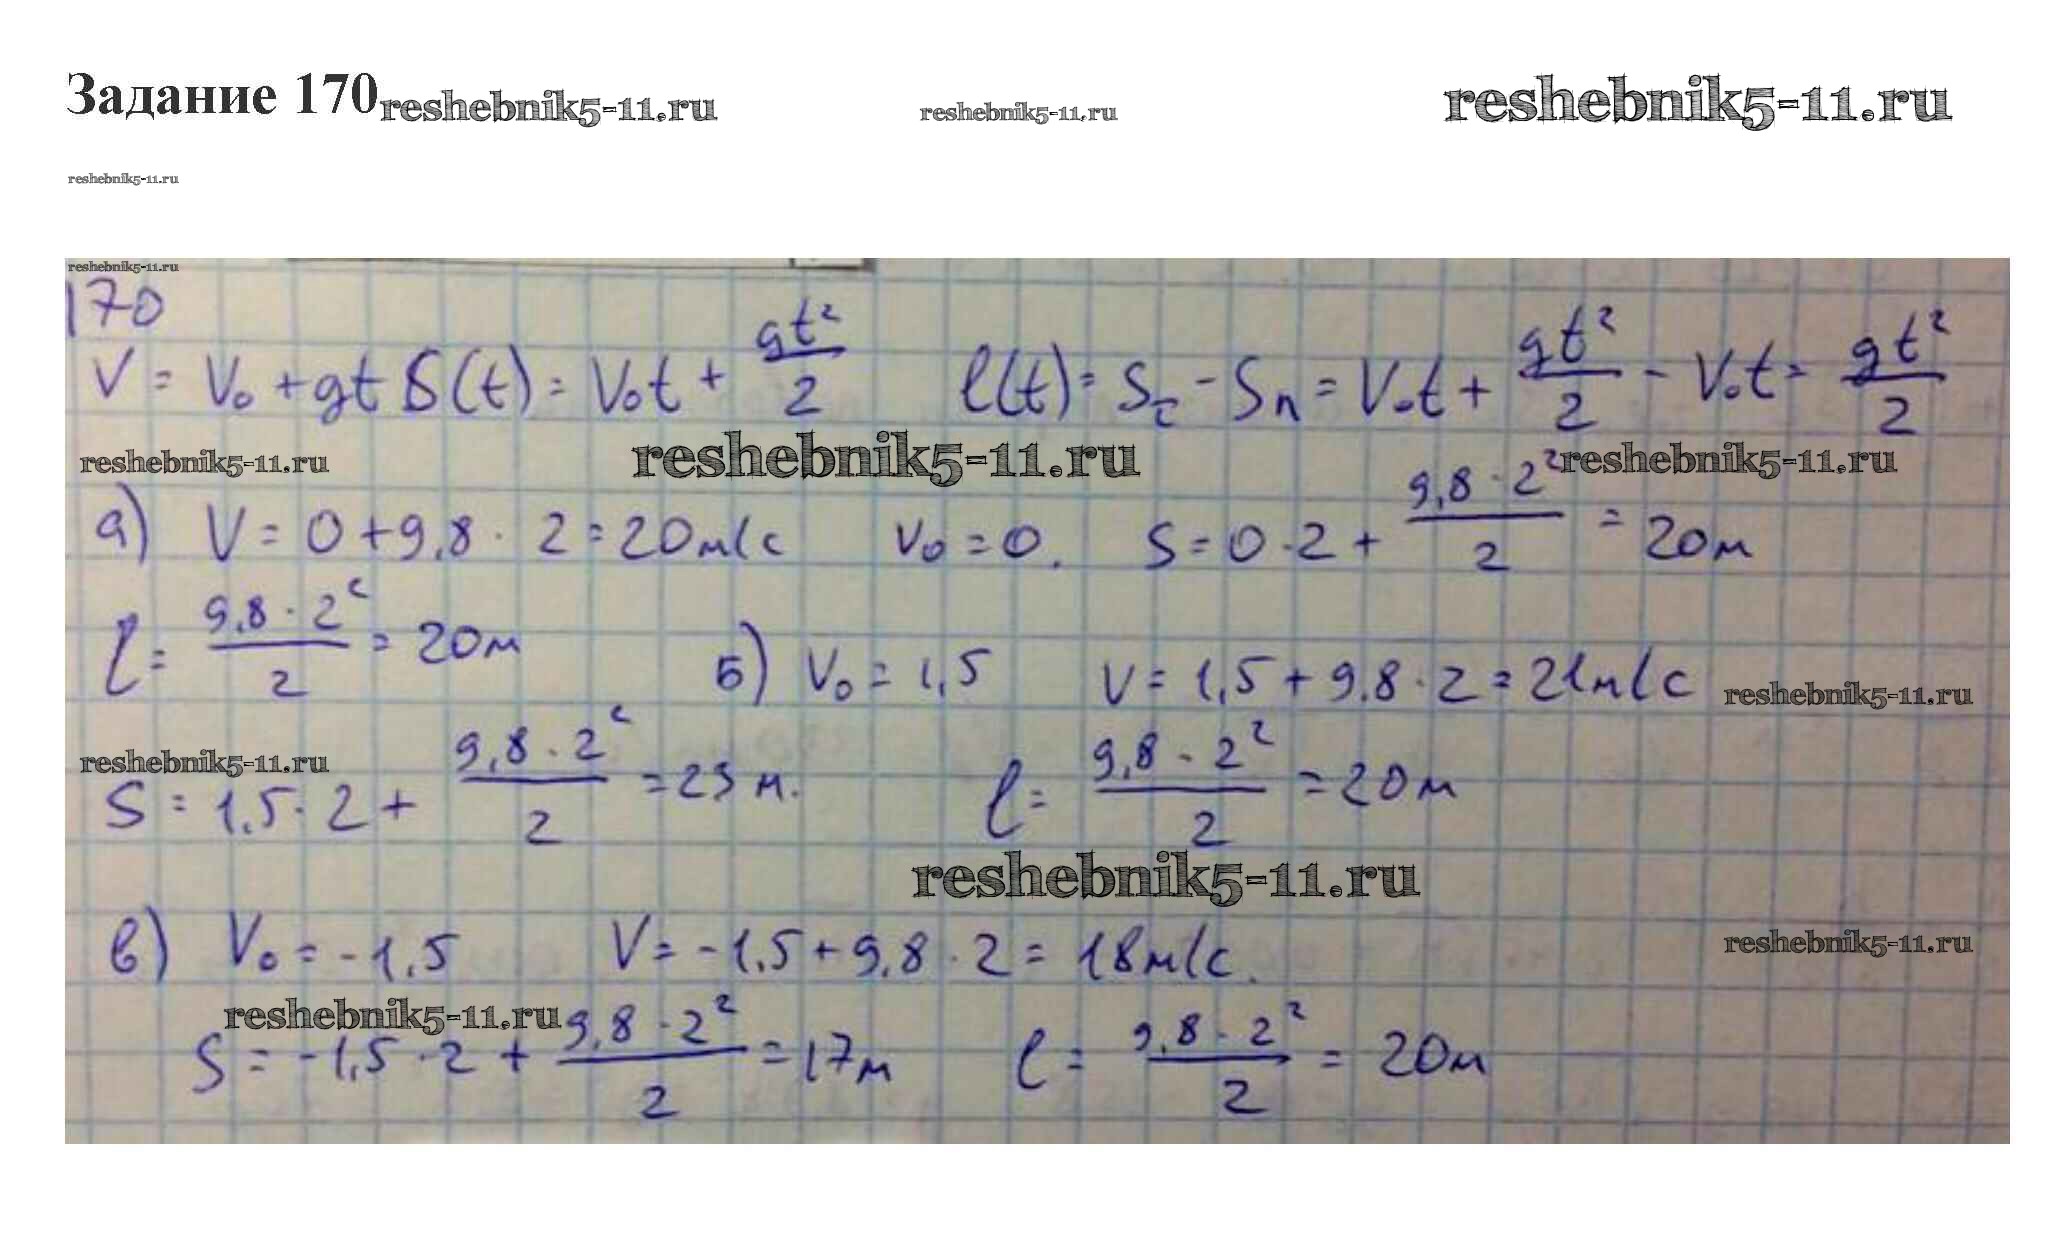 Задание 170 reshebnik5-11.ru reshebnik5-11.ru reshebnik5-11.ru
reshebnik5-11.ru
reshebnik5-11.ru
170
V = V₀ + gt S(t) = V₀t + gt²/2 l(t) = Sc - Sп = V₀t + gt²/2 - V₀t = gt²/2
reshebnik5-11.ru reshebnik5-11.ru reshebnik5-11.ru
а) V = 0 + 9,8 · 2 = 20м/с V₀ = 0. S = 0 · 2 + 9,8 · 2²/2 = 20м
l = 9,8 · 2²/2 = 20м б) V₀ = 1,5 V = 1,5 + 9,8 · 2 = 21м/с reshebnik5-11.ru
reshebnik5-11.ru
S = 1,5 · 2 + 9,8 · 2²/2 = 23м. l = 9,8 · 2²/2 = 20м
reshebnik5-11.ru
в) V₀ = -1,5 V = -1,5 + 9,8 · 2 = 18м/с. reshebnik5-11.ru
reshebnik5-11.ru
S = -1,5 · 2 + 9,8 · 2²/2 = 17м l = 9,8 · 2²/2 = 20м